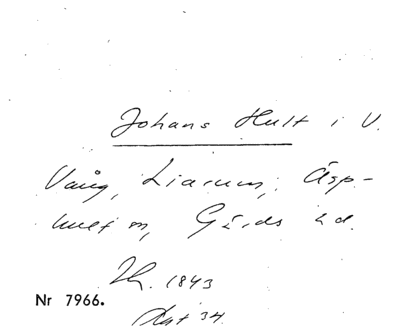 Johans Hult i V.
Vång, Liarum, Äsp-
hult sn, Gärds hd.
1843
Nr 7966.
34